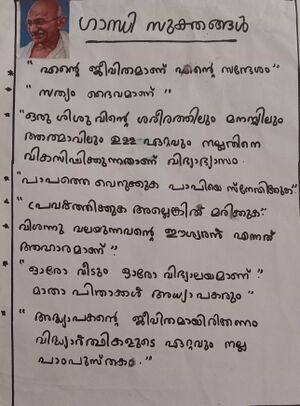 ഗാന്ധി സൂക്തങ്ങൾ
" എന്റെ ജീവിതമാണ് എന്റെ സന്ദേശം "
" സത്യം ദൈവമാണ് "
" ഒരു ശിശുവിന്റെ ശരീരത്തിലും മനസ്സിലും
ആത്മാവിലും ഉള്ള ഏറ്റവും നല്ലതിനെ
വികസിപ്പിക്കുന്നതാണ് വിദ്യാഭ്യാസം .
" പാപത്തെ വെറുക്കുക പാപിയെ സ്നേഹിക്കുക "
" പ്രവർത്തിക്കുക അല്ലെങ്കിൽ മരിക്കുക "
വിശന്നു വലയുന്നവന്റെ ഈശ്വരൻ എന്നത്
ആഹാരമാണ് "
" ഓരോ വീടും ഓരോ വിദ്യാലയമാണ് "
മാതാ പിതാക്കൾ അധ്യാപകരും "
" അദ്ധ്യാപകന്റെ ജീവിതമായിരിക്കണം
വിദ്യാർത്ഥികളുടെ ഏറ്റവും നല്ല
പാഠപുസ്തകം . "